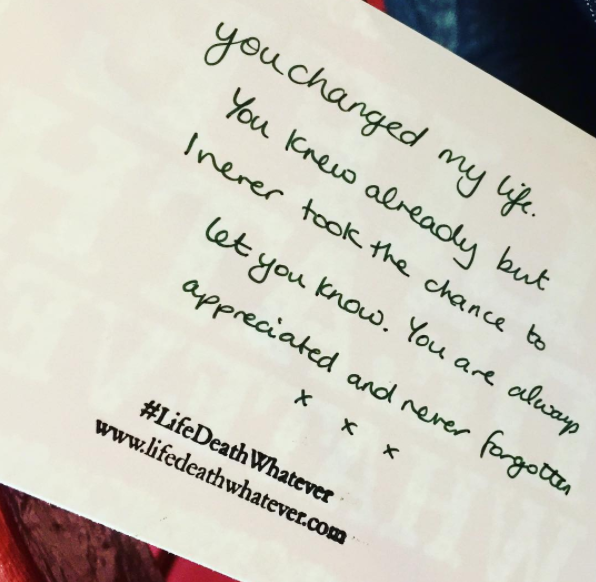 you changed my life.
You knew already but
I never took the chance to
let you know. You are always
appreciated and never forgotten
x x x
#LifeDeathWhatever
www.lifedeathwhatever.com